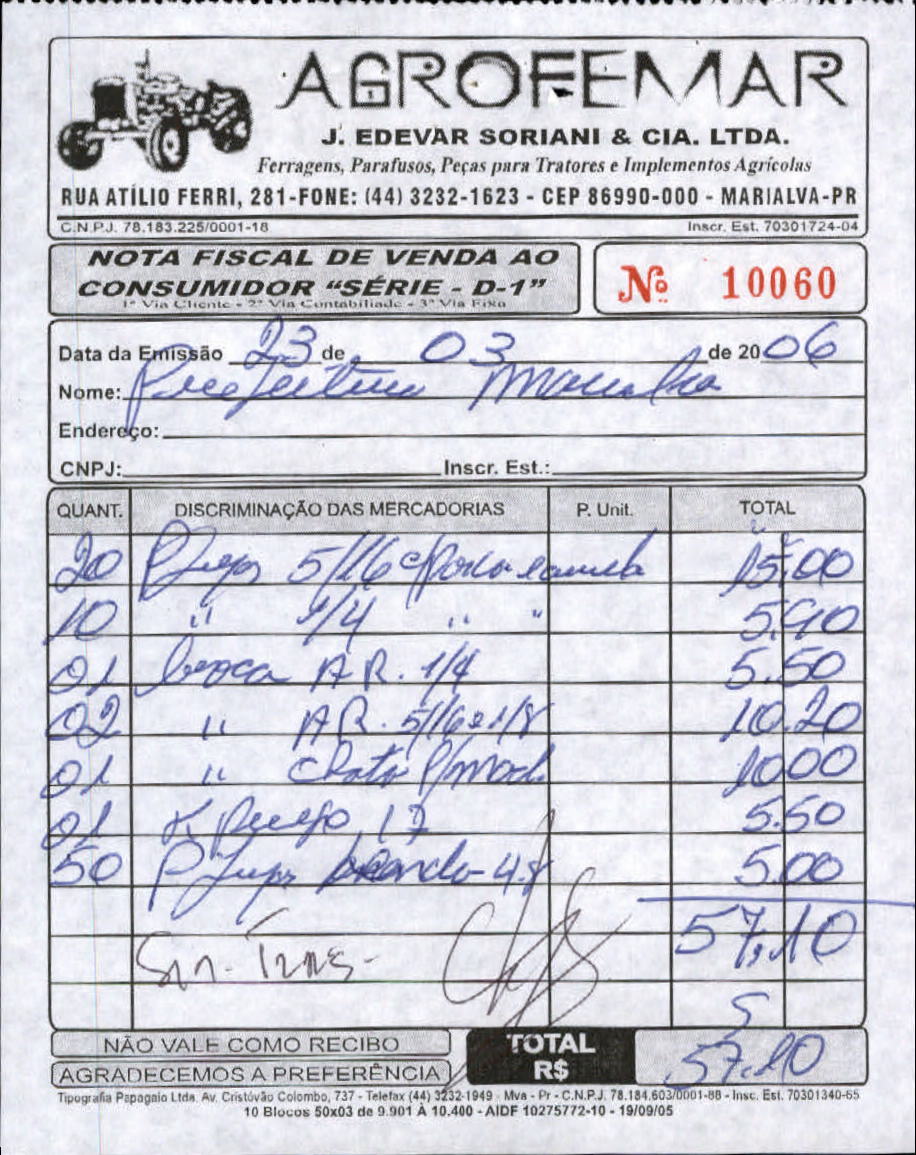 AGROFEMAR
J. EDEVAR SORIANI & CIA. LTDA.
Ferragens, Parafusos, Peças para Tratores e Implementos Agrícolas
RUA ATÍLIO FERRI, 281-FONE: (44) 3232-1623 - CEP 86990-000 - MARIALVA-PR
C.N.P.J. 78.183.225/0001-18 Inscr. Est. 70301724-04
NOTA FISCAL DE VENDA AO
CONSUMIDOR "SÉRIE - D-1"
1ª Via Cliente - 2ª Via Contabiliade - 3ª Via Fixa
Nº 10060
Data da Emissão 23 de 03 de 2006
Nome: Prefeitura Marialva
Endereço:
CNPJ: Inscr. Est.:
QUANT. DISCRIMINAÇÃO DAS MERCADORIAS P. Unit. TOTAL
20 5/16 15.00
10 " 1/4 " " 5.90
01 broca A R. 1/4 5.50
02 " A R. 5/16 e 1/8 10.20
01 " chata P/ 10.00
01 17 5.50
50 5.00
57,10
NÃO VALE COMO RECIBO
AGRADECEMOS A PREFERÊNCIA
TOTAL R$ 57.10
Tipografia Papagaio Ltda. Av. Cristóvão Colombo, 737 - Telefax (44) 3232-1949 - Mva - Pr - C.N.P.J. 78.184.603/0001-88 - Insc. Est. 70301340-65
10 Blocos 50x03 de 9.901 À 10.400 - AIDF 10275772-10 - 19/09/05